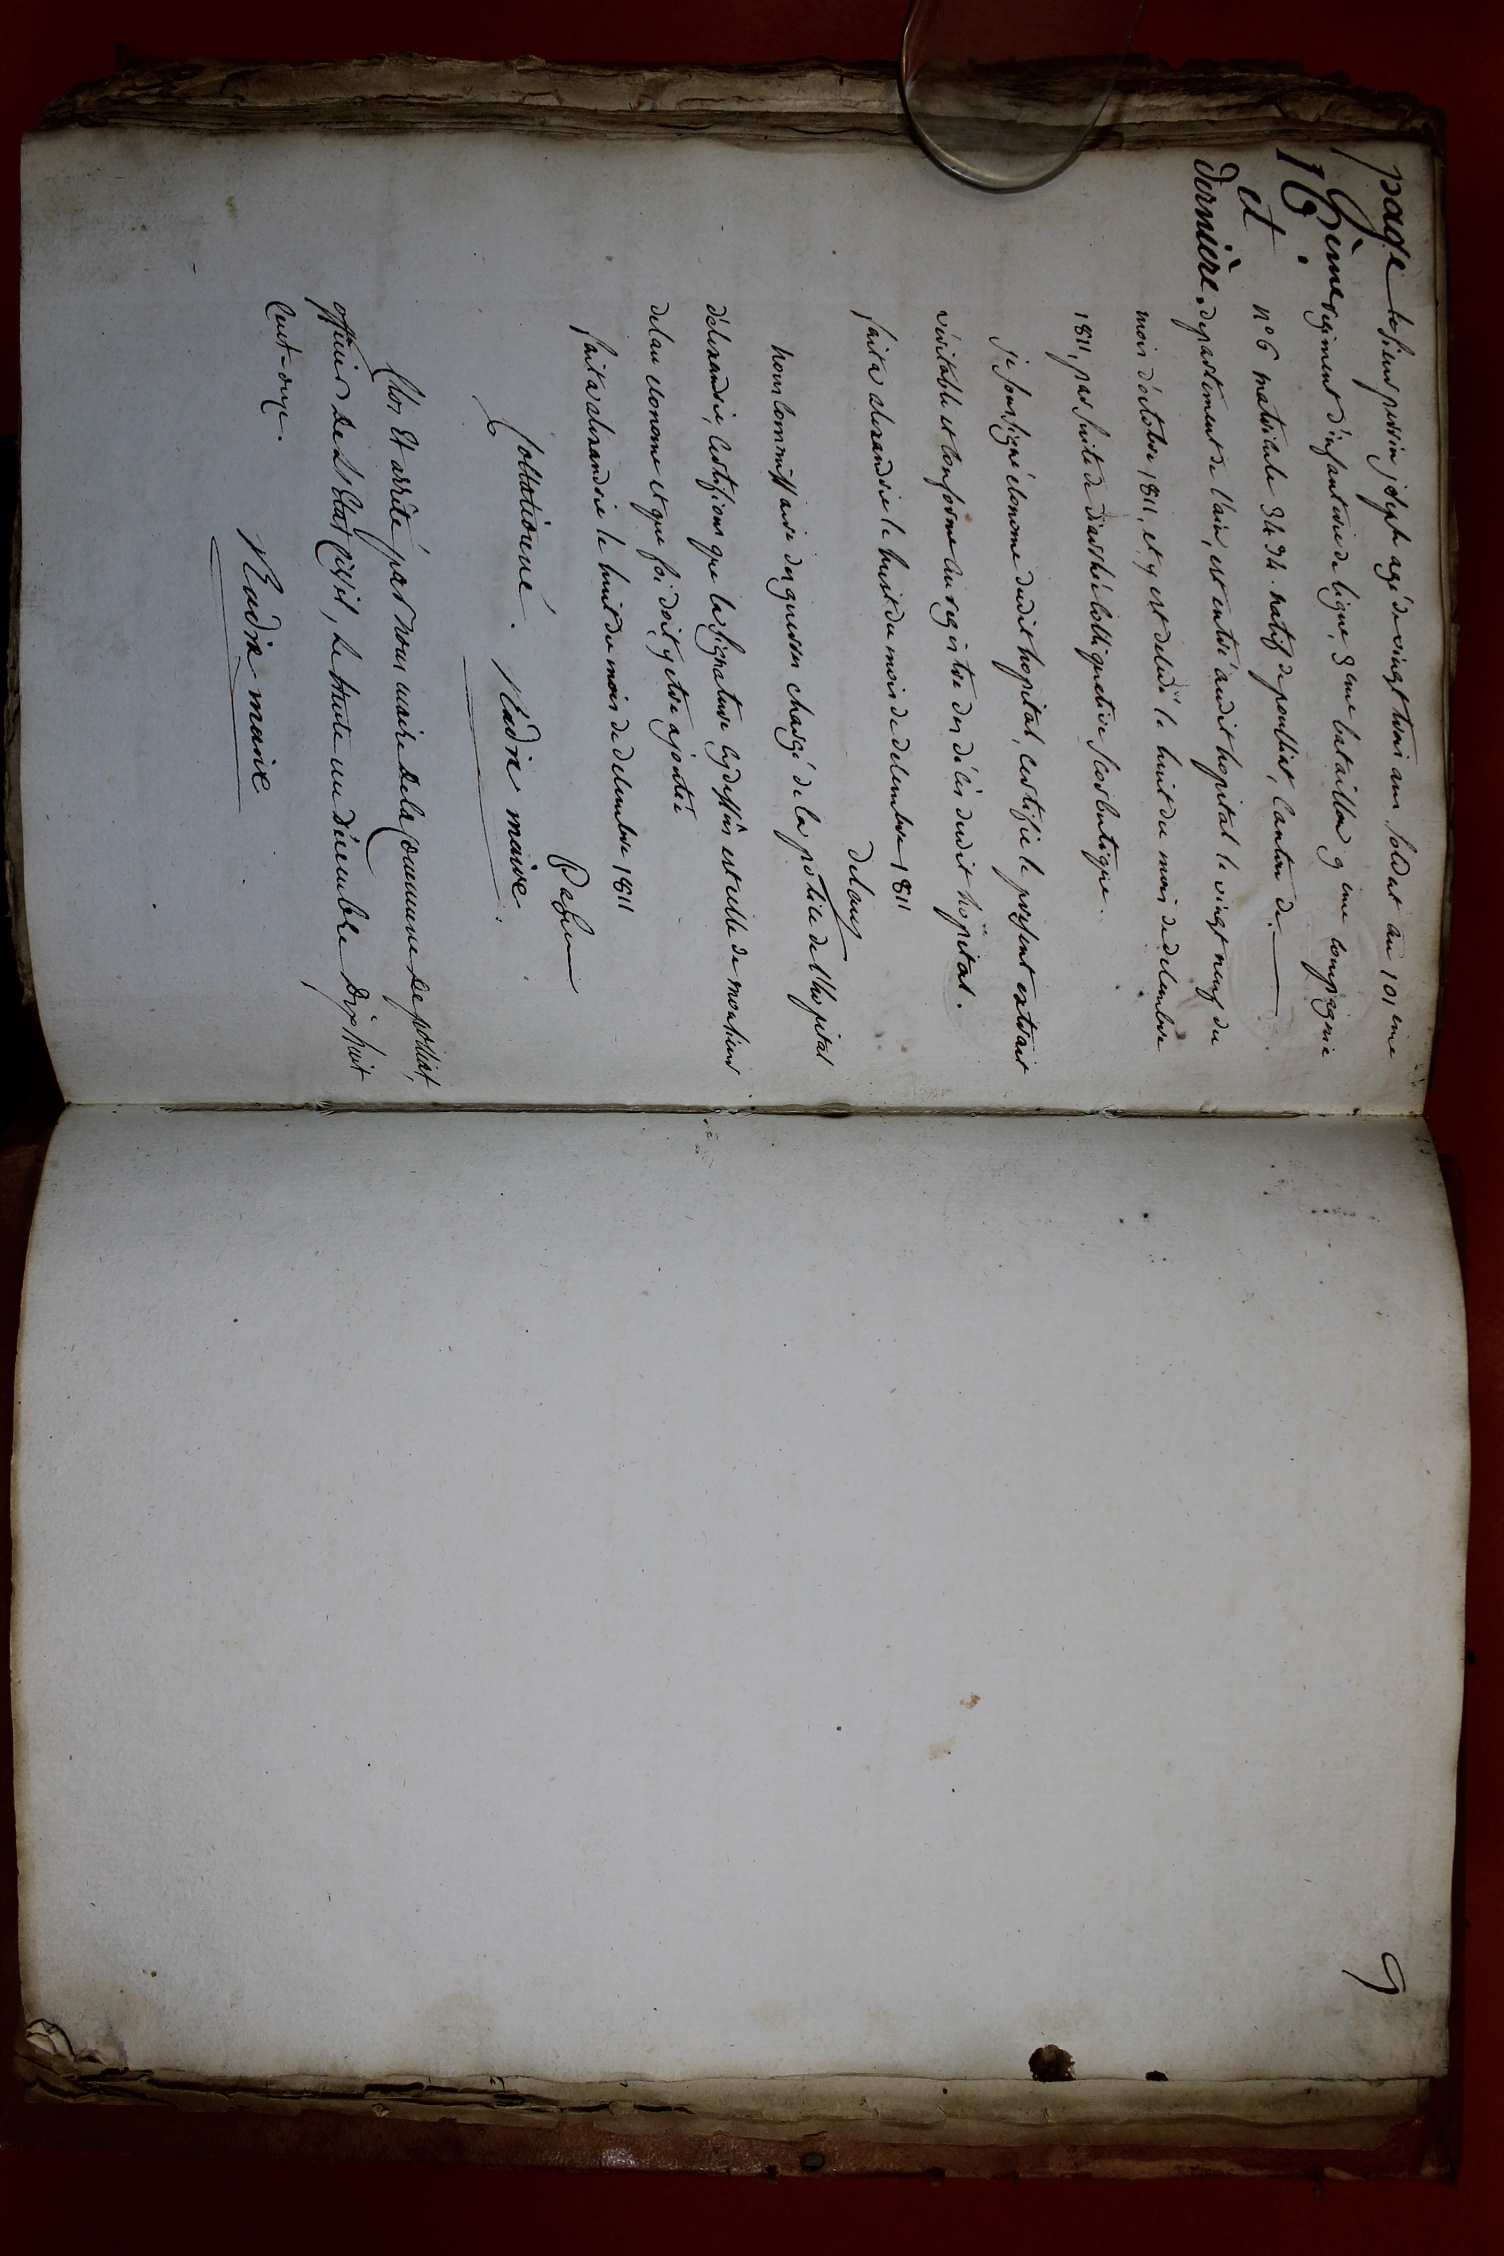 page
16ème
et
dernière.
le sieur perrin joseph agé de vingt trois ans soldat au 101 eme
regiment d'infanterie de ligne, 3 eme bataillon 9 eme compagnie
n° 6 matricule 3494. natif de poulliat, Canton de
departement de l'ain, est entré audit hopital le vingt neuf du
mois d'octobre 1811, et y est decedé le huit du mois de decembre
1811, par suite de diarrhé colliquative scorbutique.
je soussigné econome dudit hopital, certifie le present extrait
véritable et conforme au registre des décès dudit hopital.
fait a alexandrie le huit du mois de decembre 1811
delau
nous commissaire des guerres chargé de la police de l'hopital
d'alexandrie, certifions que la signature cydessus est celle de monsieur
delau econome et que foi doit y etre ajoutée
fait a alexandrie le huit du mois de decembre 1811
Collationné.
maire
Clos Et arrêté par nous maire de la Commune de polliat,
officier de L'Etat Civil, le trente un décembre dix huit
Cent-onze.
maire
9